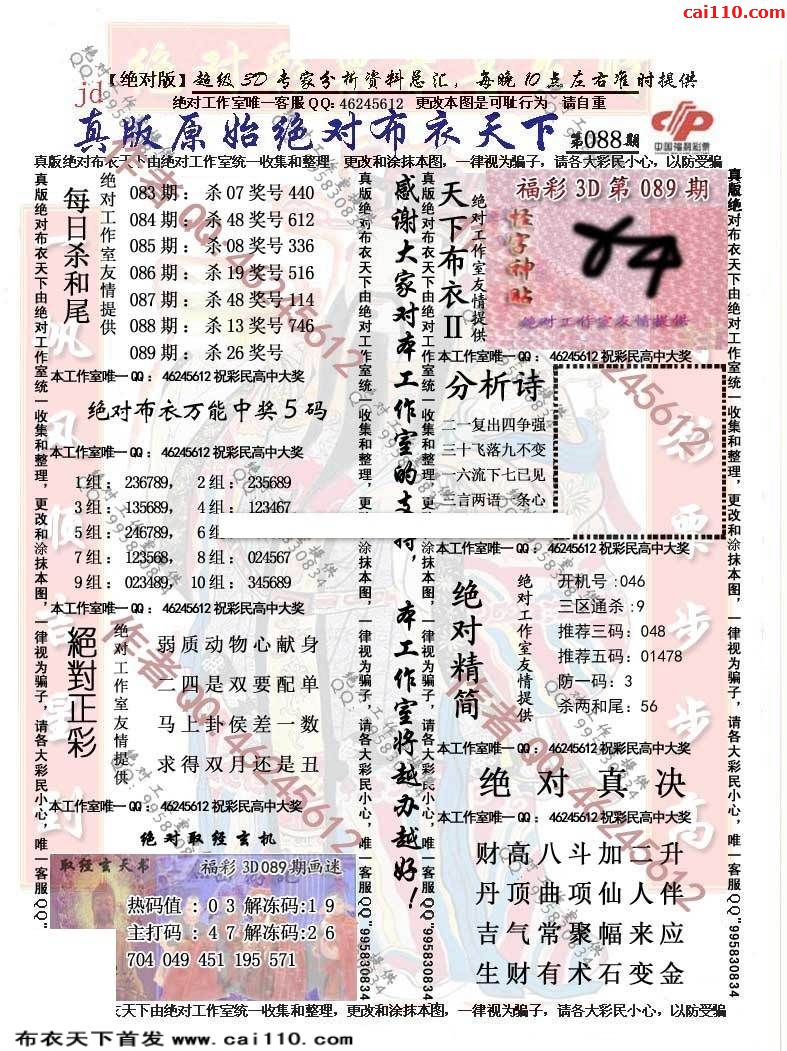 cai110.com
【绝对版】超级3D专家分析资料总汇，每晚10点左右准时提供
jd
绝对工作室唯一客服QQ:46245612 更改本图是可耻行为 请自重
真版原始绝对布衣天下 第088期
中国福利彩票
真版绝对布衣天下由绝对工作室统一收集和整理，更改和涂抹本图，一律视为骗子，请各大彩民小心，以防受骗
每日杀和尾
绝对工作室友情提供
083期：杀07奖号440
084期：杀48奖号612
085期：杀08奖号336
086期：杀19奖号516
087期：杀48奖号114
088期：杀13奖号746
089期：杀26奖号
本工作室唯一QQ：46245612祝彩民高中大奖
绝对布衣万能中奖5码
本工作室唯一QQ：46245612祝彩民高中大奖
1组：236789， 2组：235689
3组：135689， 4组：123467
5组：246789， 6组
7组：123568， 8组：024567
9组：023489， 10组：345689
本工作室唯一QQ：46245612祝彩民高中大奖
絕對正彩
绝对工作室友情提供
弱质动物心献身
二四是双要配单
马上卦侯差一数
求得双月还是丑
本工作室唯一QQ：46245612祝彩民高中大奖
绝对取经玄机
取经玄天书 福彩3D089期画迷
热码值：03解冻码:19
主打码：47解冻码:26
704 049 451 195 571
感谢大家对本工作室的支持，本工作室将越办越好！
天下布衣II
绝对工作室友情提供
福彩3D第089期
怪字神贴
绝对工作室友情提供
本工作室唯一QQ：46245612祝彩民高中大奖
分析诗
二一复出四争强
三十飞落九不变
一六流下七已见
二言两语一条心
本工作室唯一QQ：46245612祝彩民高中大奖
绝对精简
绝对工作室友情提供
开机号:046
三区通杀:9
推荐三码:048
推荐五码:01478
防一码:3
杀两和尾:56
本工作室唯一QQ：46245612祝彩民高中大奖
绝对真决
本工作室唯一QQ：46245612祝彩民高中大奖
财高八斗加二升
丹顶曲项仙人伴
吉气常聚幅来应
生财有术石变金
真版绝对布衣天下由绝对工作室统一收集和整理，更改和涂抹本图，一律视为骗子，请各大彩民小心，唯一客服QQ"995830834
衣天下由绝对工作室统一收集和整理，更改和涂抹本图，一律视为骗子，请各大彩民小心，以防受骗
布衣天下首发 www.cai110.com